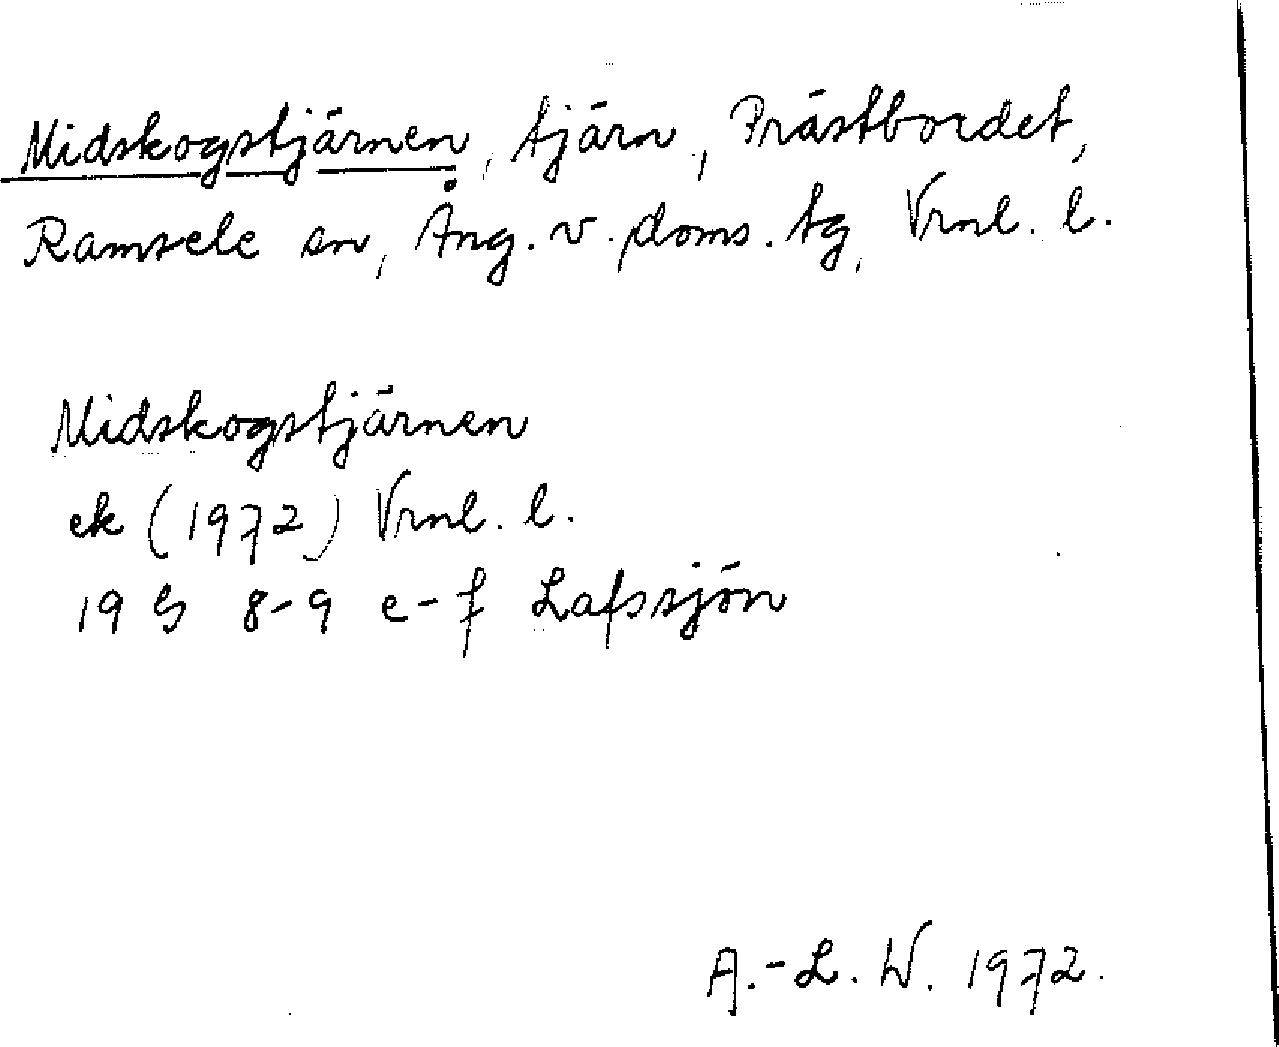 Midskogstjärnen, tjärn, Prästbordet,
Ramsele sn, Ång. v. doms. tg, Vrnl. l.
Midskogstjärnen
ek (1972) Vrnl. l.
19 G 8-9 e-f Lafssjön
A.-L. W. 1972.